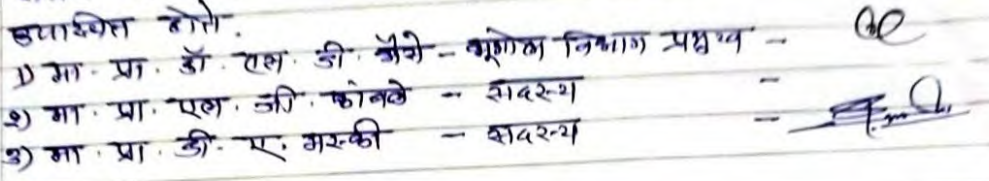 उपास्थित होते.
१) मा. प्रा. डॉ. एस. डी. जैरो - भूगोल विभाग प्रमुख -
२) मा. प्रा. एल. जी. कांबळे - सदस्य -
३) मा. प्रा. डी. ए. मस्की - सदस्य -